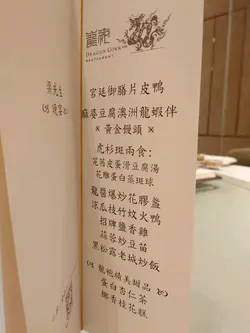 龍袍
DRAGON GOWN
RESTAURANT
宮廷御膳片皮鴨
麻婆豆腐澳洲龍蝦伴
× 黃金饅頭 ×
虎杉斑兩食:
芫茜皮蛋滑豆腐湯
花雕蛋白蒸斑球
龍醬爆炒花膠盞
涼瓜枝竹炆火鴨
招牌鹽香雞
蒜蓉炒豆苗
黑松露老城炒飯
龍袍精美甜品
蛋白杏仁茶
椰香桂花糕
張先生
晚宴